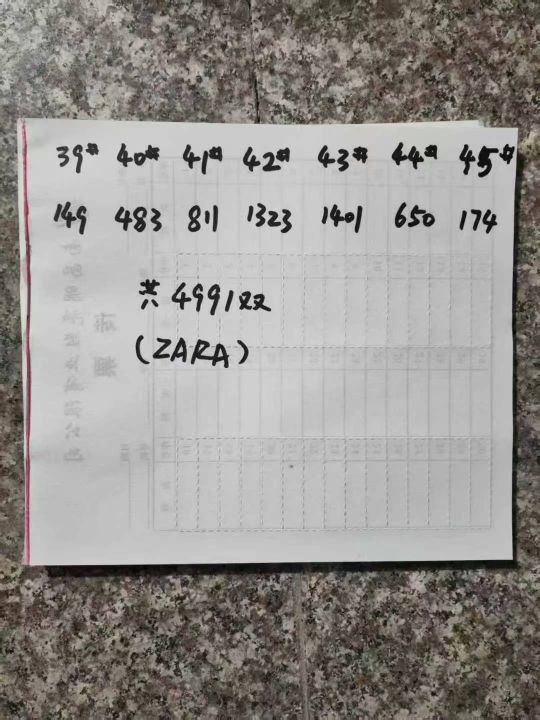 39# 40# 41# 42# 43# 44# 45#
149 483 811 1323 1401 650 174
共4991双
(ZARA)